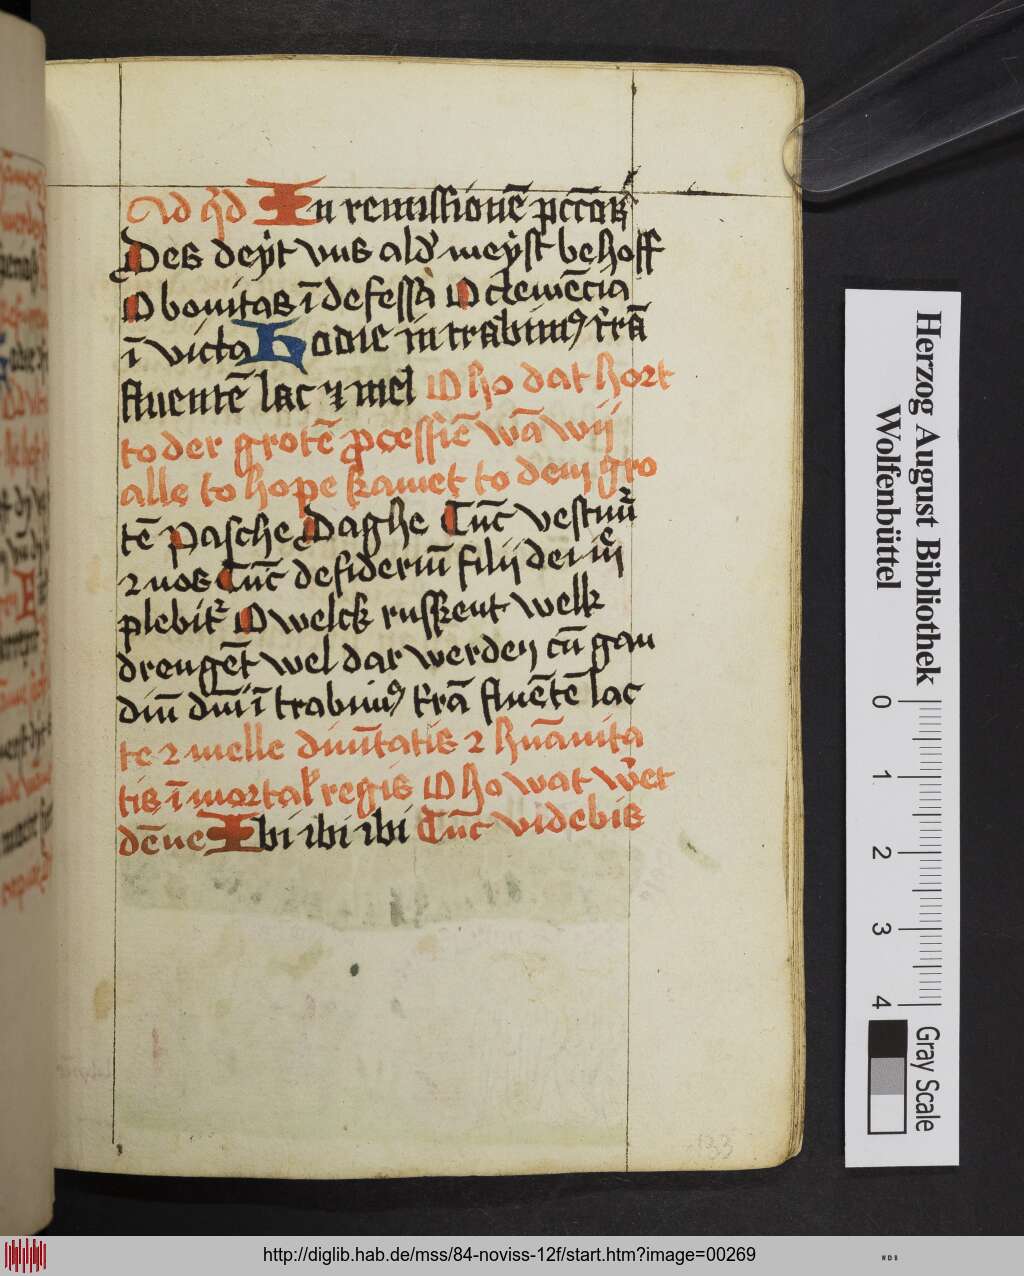 Ad qͥd In remissionē pctōꝝ
Des deẏt vns ald' meẏst behoff
O bonitas ī defessa O clemēcia
ī victa Hodie in trabimꝰ t'rā
fluentē lac ⁊ mel O ho dat hort
to der grotē ꝓcessiē wā wij
alle to hope kamet to dem gro
tē Pasche Daghe Tūc vestiu͛
⁊ nos Tūc desideriū filij dei
plebit᷑ O welck russkent welk
drengēt wel dar werden cū gau
diū dm̄ ī trabimꝰ t'rā fluētē lac
te ⁊ melle diuītatis ⁊ hūanita
tis ī mortal' regis O ho wat w'et
dēne Ibi ibi ibi Tūc videbis
133
Herzog August Bibliothek
Wolfenbüttel
0 1 2 3 4
Gray Scale
http://diglib.hab.de/mss/84-noviss-12f/start.htm?image=00269